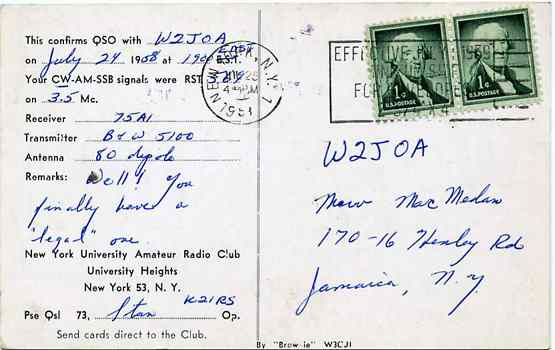 This confirms QSO with W2JOA
on July 24 1958 at EDST E.S.T.
Your CW-AM-SSB signals were RST
on 3.5 Mc.
Receiver 75A1
Transmitter B&W 5100
Antenna 80 dipole
Remarks: Well! You
finally have a
"legal" one.
New York University Amateur Radio Club
University Heights
New York 53, N. Y.
K2IRS
Pse Qsl 73, Stan Op.
Send cards direct to the Club.
NEW YORK, N.Y. 1
1¢ 1¢
U.S. POSTAGE U.S. POSTAGE
W2JOA
Mac
170-16 Henley Rd
Jamaica, N.Y.
By "Brownie" W3CJI